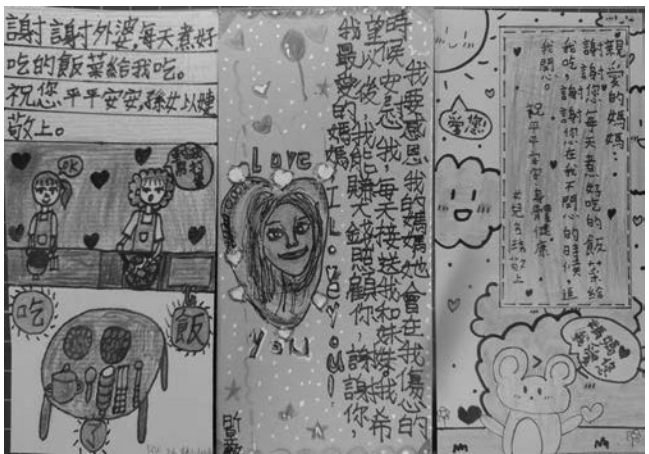 謝謝外婆,每天煮好
吃的飯菜給我吃。
祝您平平安安,孫女以睫
敬上。
OK
吃
飯
了
我要感恩我的媽媽,她會在我傷心的
時候安慰我,每天接送我和妹妹,我希
望以後,我能賺大錢照顧你,謝謝你,
我最愛的媽媽 I Love you!
Love
you
親愛的媽媽:
謝謝您每天煮好吃的飯菜給
我吃,謝謝您在我不開心的時候,逗
我開心。
祝平平安安、身體健康
女兒 敬上
愛您